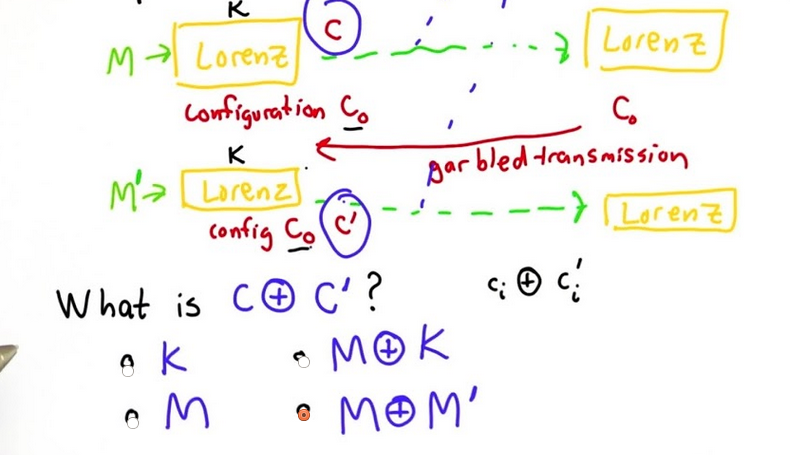 K
C
M → Lorenz
Lorenz
configuration C₀
C₀
garbled transmission
K
M' → Lorenz
C'
Lorenz
config C₀
What is C ⊕ C' ?
cᵢ ⊕ cᵢ'
K
M ⊕ K
M
M ⊕ M'